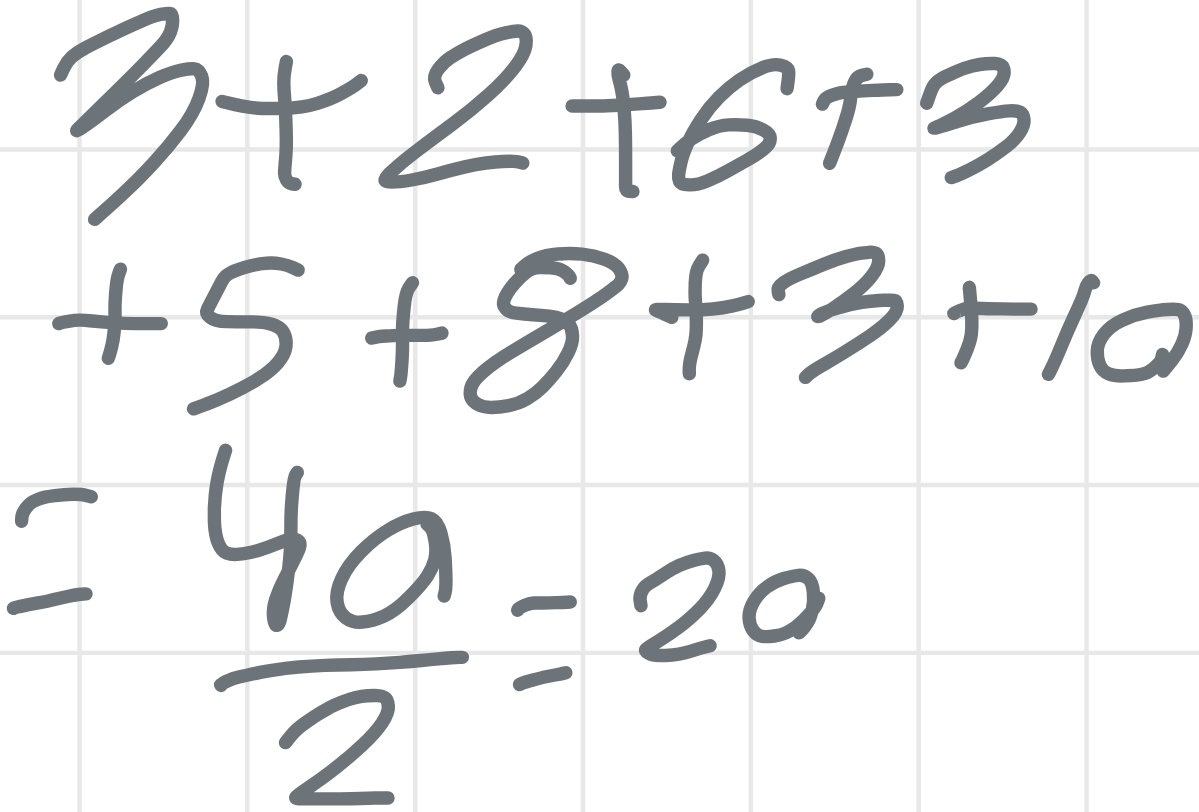 3+2+6+3
+5+8+3+10
= 40/2 = 20